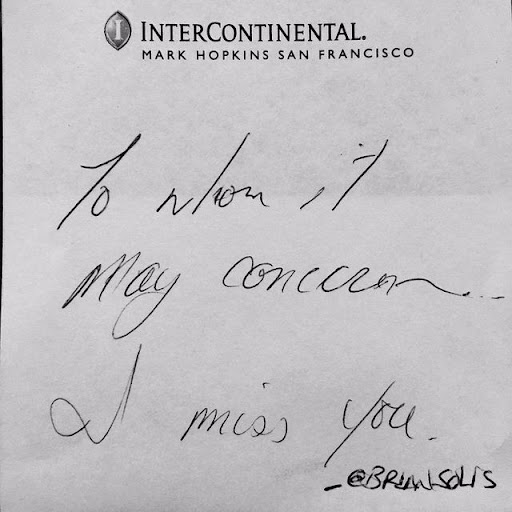 I INTERCONTINENTAL.
MARK HOPKINS SAN FRANCISCO
To whom it
may concern...
I miss you.
-@BRIANSOLIS